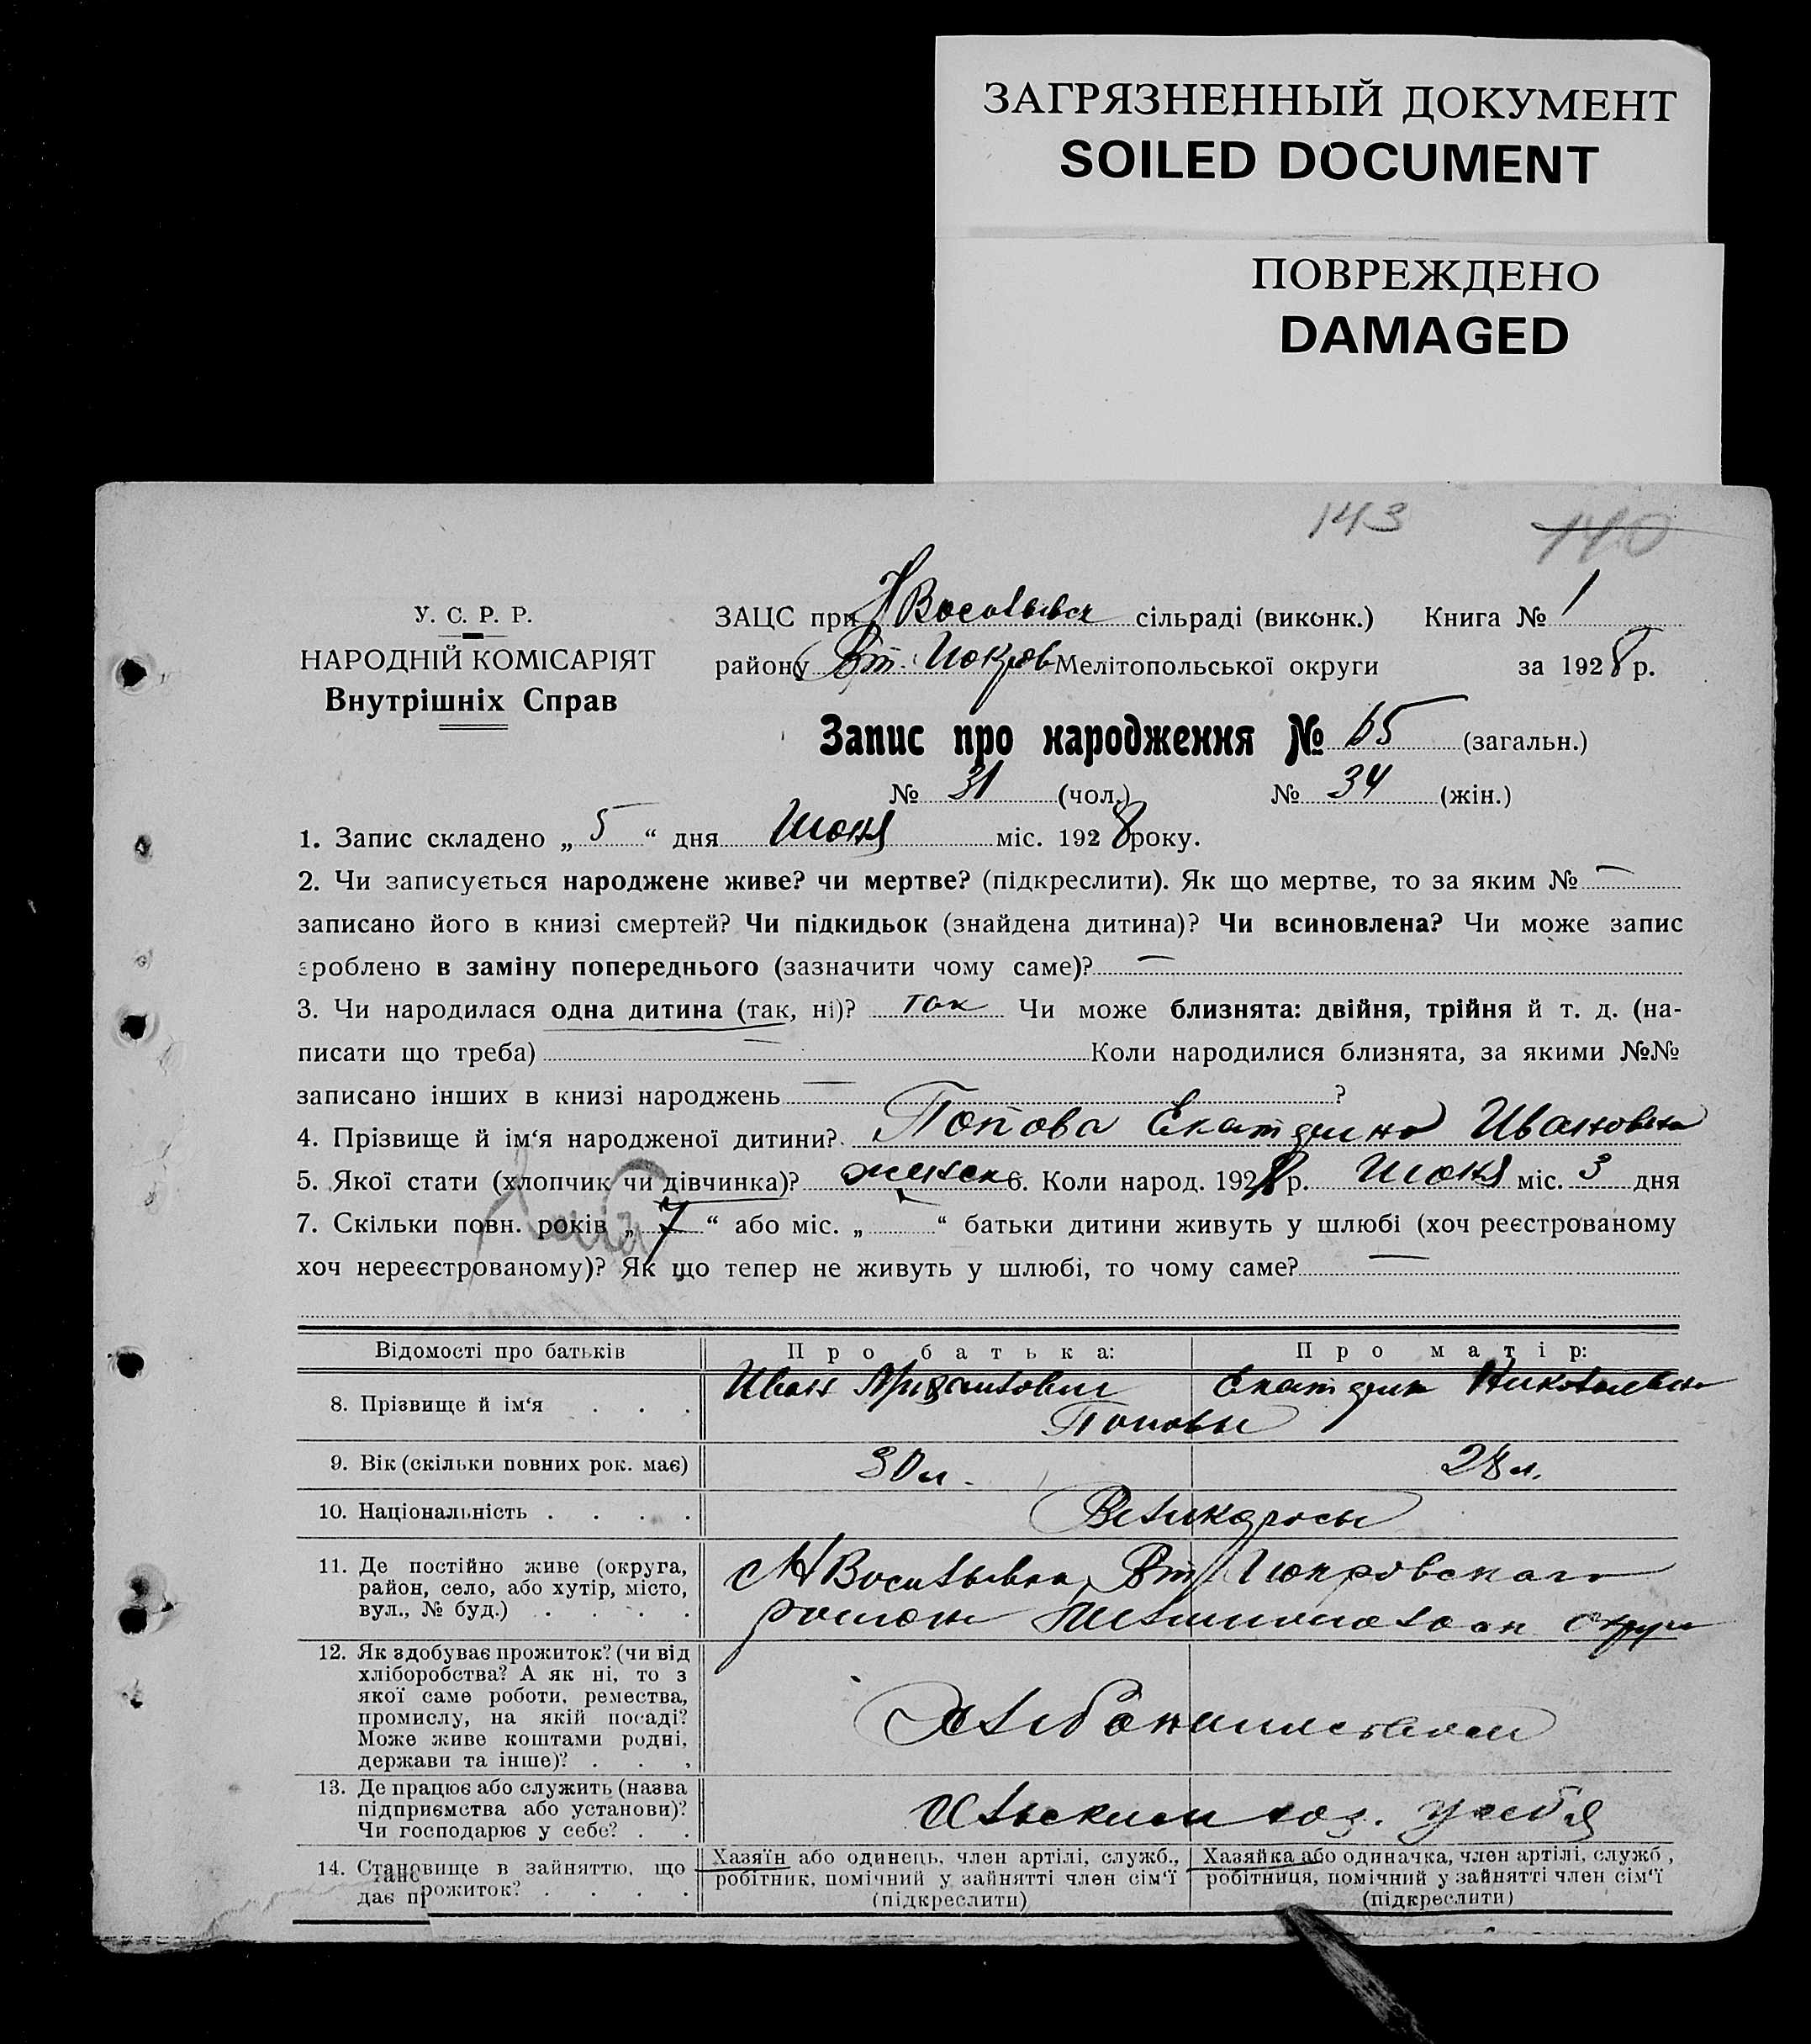 ЗАГРЯЗНЕННЫЙ ДОКУМЕНТ
SOILED DOCUMENT
ПОВРЕЖДЕНО
DAMAGED
143 140
У. С. Р. Р.
НАРОДНІЙ КОМІСАРІЯТ
Внутрішніх Справ
ЗАЦС при Н Васильевск сільраді (виконк.) Книга № 1
району Вт. Покров Мелітопольської округи за 1928 р.
Запис про народження № 65 (загальн.)
№ 31 (чол.) № 34 (жін.)
1. Запис складено „ 5 “ дня Июня міс. 1928 року.
2. Чи записується народжене живе? чи мертве? (підкреслити). Як що мертве, то за яким № —
записано його в книзі смертей? Чи підкидьок (знайдена дитина)? Чи всиновлена? Чи може запис
зроблено в заміну попереднього (зазначити чому саме)? —
3. Чи народилася одна дитина (так, ні)? так Чи може близнята: двійня, трійня й т. д. (на-
писати що треба) — Коли народилися близнята, за якими №№
записано інших в книзі народжень — ?
4. Прізвище й ім‘я народженої дитини? Попова Екатерина Ивановна
5. Якої стати (хлопчик чи дівчинка)? женск 6. Коли народ. 1928 р. Июня міс. 3 дня
7. Скільки повн. років „ 7 “ або міс. „ “ батьки дитини живуть у шлюбі (хоч реєстрованому
хоч нереєстрованому)? Як що тепер не живуть у шлюбі, то чому саме? —
Відомості про батьків
Про батька:
Про матір:
8. Прізвище й ім‘я . . .
Иван
Екатерина Николаевна
Поповы
9. Вік (скільки повних рок. має)
30 л.
28 л.
10. Національність . . . .
Великоросы
11. Де постійно живе (округа,
район, село, або хутір, місто,
вул., № буд.) . . . .
с Н Васильевка, Вт Покровскаго
района Мелитопольск округи
12. Як здобуває прожиток? (чи від
хліборобства? А як ні, то з
якої саме роботи, ремества,
промислу, на якій посаді?
Може живе коштами родні,
держави та інше)? . . .
Хлебопашеством
13. Де працює або служить (назва
підприємства або установи)?
Чи господарює у себе? . .
Сельским хоз. у себя
14. Становище в зайняттю, що
дає прожиток? . . . .
Хазяїн або одинець, член артілі, служб.,
робітник, помічний у зайнятті член сім‘ї
(підкреслити)
Хазяйка або одиначка, член артілі, служб,
робітниця, помічний у зайнятті член сім‘ї
(підкреслити)